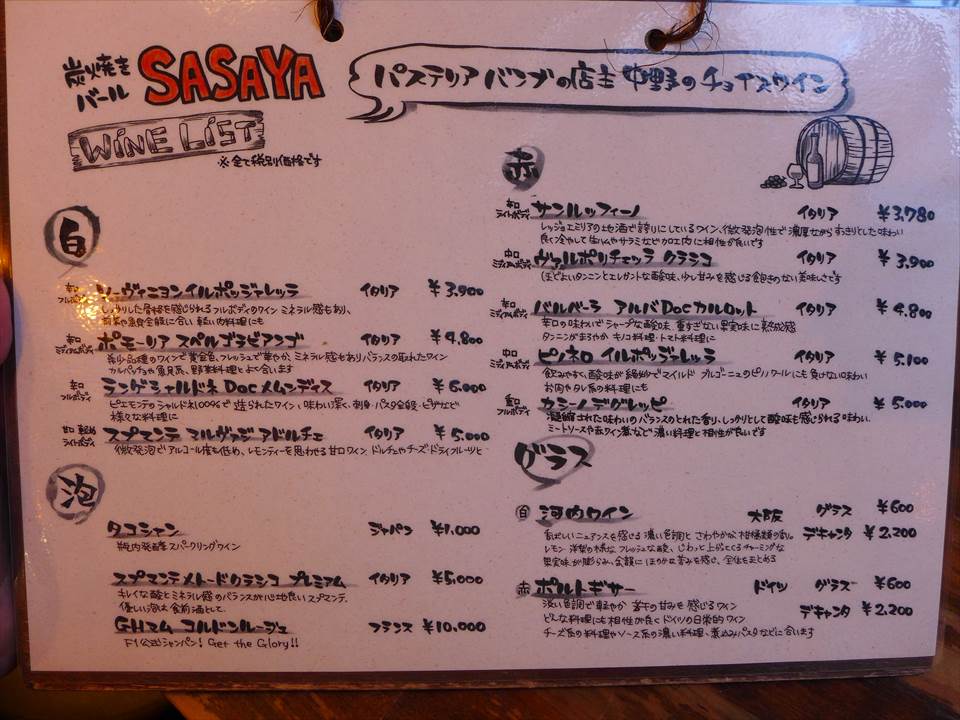 炭火焼き
バール
SASAYA
パステリアバンブの店主 中野のチョイスワイン
WINE LIST
※全て税別価格です
白
辛口
フルボディ
ソーヴィニヨンイルポッジャレッラ イタリア ¥3,900
しっかりした骨格を感じられるフルボディのワイン ミネラル感もあり、
前菜や魚食全般に合い 軽い肉料理にも
辛口
ミディアムボディ
ポモーリア スペルゴラビアンゴ イタリア ¥4,800
希少品種のワインで黄金色、フレッシュで華やか、ミネラル感もありバランスの取れたワイン
カルパッチョや魚貝系、野菜料理とよく合います
辛口
フルボディ
ランゲシャルドネ Doc メムンディス イタリア ¥6,000
ピエモンテのシャルドネ100%で造られたワイン、味わい深く、刺身・パスタ全般・ピザなど
様々な料理に
甘口 軽め
ライトボディ
スプマンテ マルヴァジアドルチェ イタリア ¥5,000
微発泡でアルコール度も低め、レモンティーを思わせる甘口ワイン、ドルチェやチーズ・ドライフルーツと
泡
タコシャン ジャパン ¥1,000
瓶内発酵 スパークリングワイン
スプマンテメトードクラシコ プレミアム イタリア ¥5,000
キレイな酸とミネラル感のバランスが心地良いスプマンテ、
優しい泡は食前酒として、
G.H.マム コルドンルージュ フランス ¥10,000
F1公式シャンパン! Get the Glory!!
赤
辛口
ライトボディ
サンルッフィーノ イタリア ¥3,780
レッジョエミリアの地酒で誇りにしているワイン、微発泡性で濃厚ながらすっきりとした味わい
良く冷やして生ハムやサラミなど加工肉に相性が良いです
中口
ミディアムボディ
ヴァルポリチェッラ クラシコ イタリア ¥3,900
ほどよいタンニンとエレガントな酸味、少し甘みを感じる飽きのない美味しさです
辛口
ミディアムボディ
バルベーラ アルバ Doc カルロット イタリア ¥4,800
辛口の味わいでシャープな酸味、重すぎない果実味に熟成感
タンニンがまろやか キノコ料理・トマト料理に
中口
ミディアムボディ
ピノネロ イルポッジャレッラ イタリア ¥5,100
飲みやすく、酸味が絶妙でマイルド ブルゴーニュのピノノワールにも負けない味わい
お肉やタレ系の料理にも
重口
フルボディ
カシーノデグレッピ イタリア ¥5,000
凝縮された味わいのバランスのとれた香り、しっかりとして酸味も感じられる味わい、
ミートソースや赤ワイン煮など濃い料理と相性が良いです
グラス
白 河内ワイン 大阪 グラス ¥600
香ばしいニュアンスを感じる濃い色調と さわやかな柑橘類の香り。 デキャンタ ¥2,200
レモン 洋梨の様な、フレッシュな酸、じわっと上がってくるチャーミングな
果実味が膨らみ、余韻にほろかな苦みを感じ、全体をまとめる
赤 ポルトギサー ドイツ グラス ¥600
淡い色調で軽やか 若干の甘みを感じるワイン デキャンタ ¥2,200
どんな料理にも相性が良くドイツの日常的ワイン
チーズ系の料理やソース系の濃い料理、煮込みパスタなどに合います